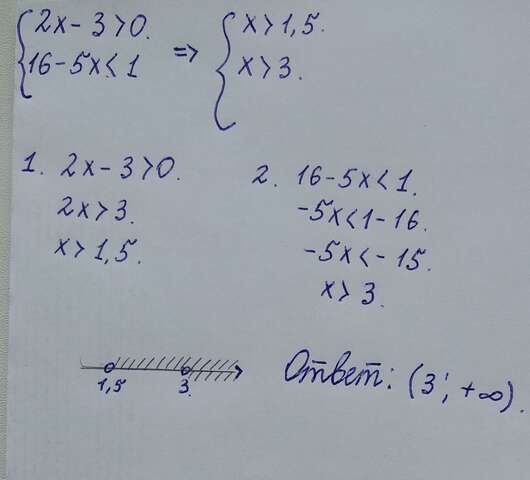 {2x-3>0. => {x>1,5.
{16-5x<1 {x>3.
1. 2x-3>0.
2x>3.
x>1,5.
2. 16-5x<1.
-5x<1-16.
-5x<-15.
x>3.
1,5 3.
Ответ: (3; +∞).